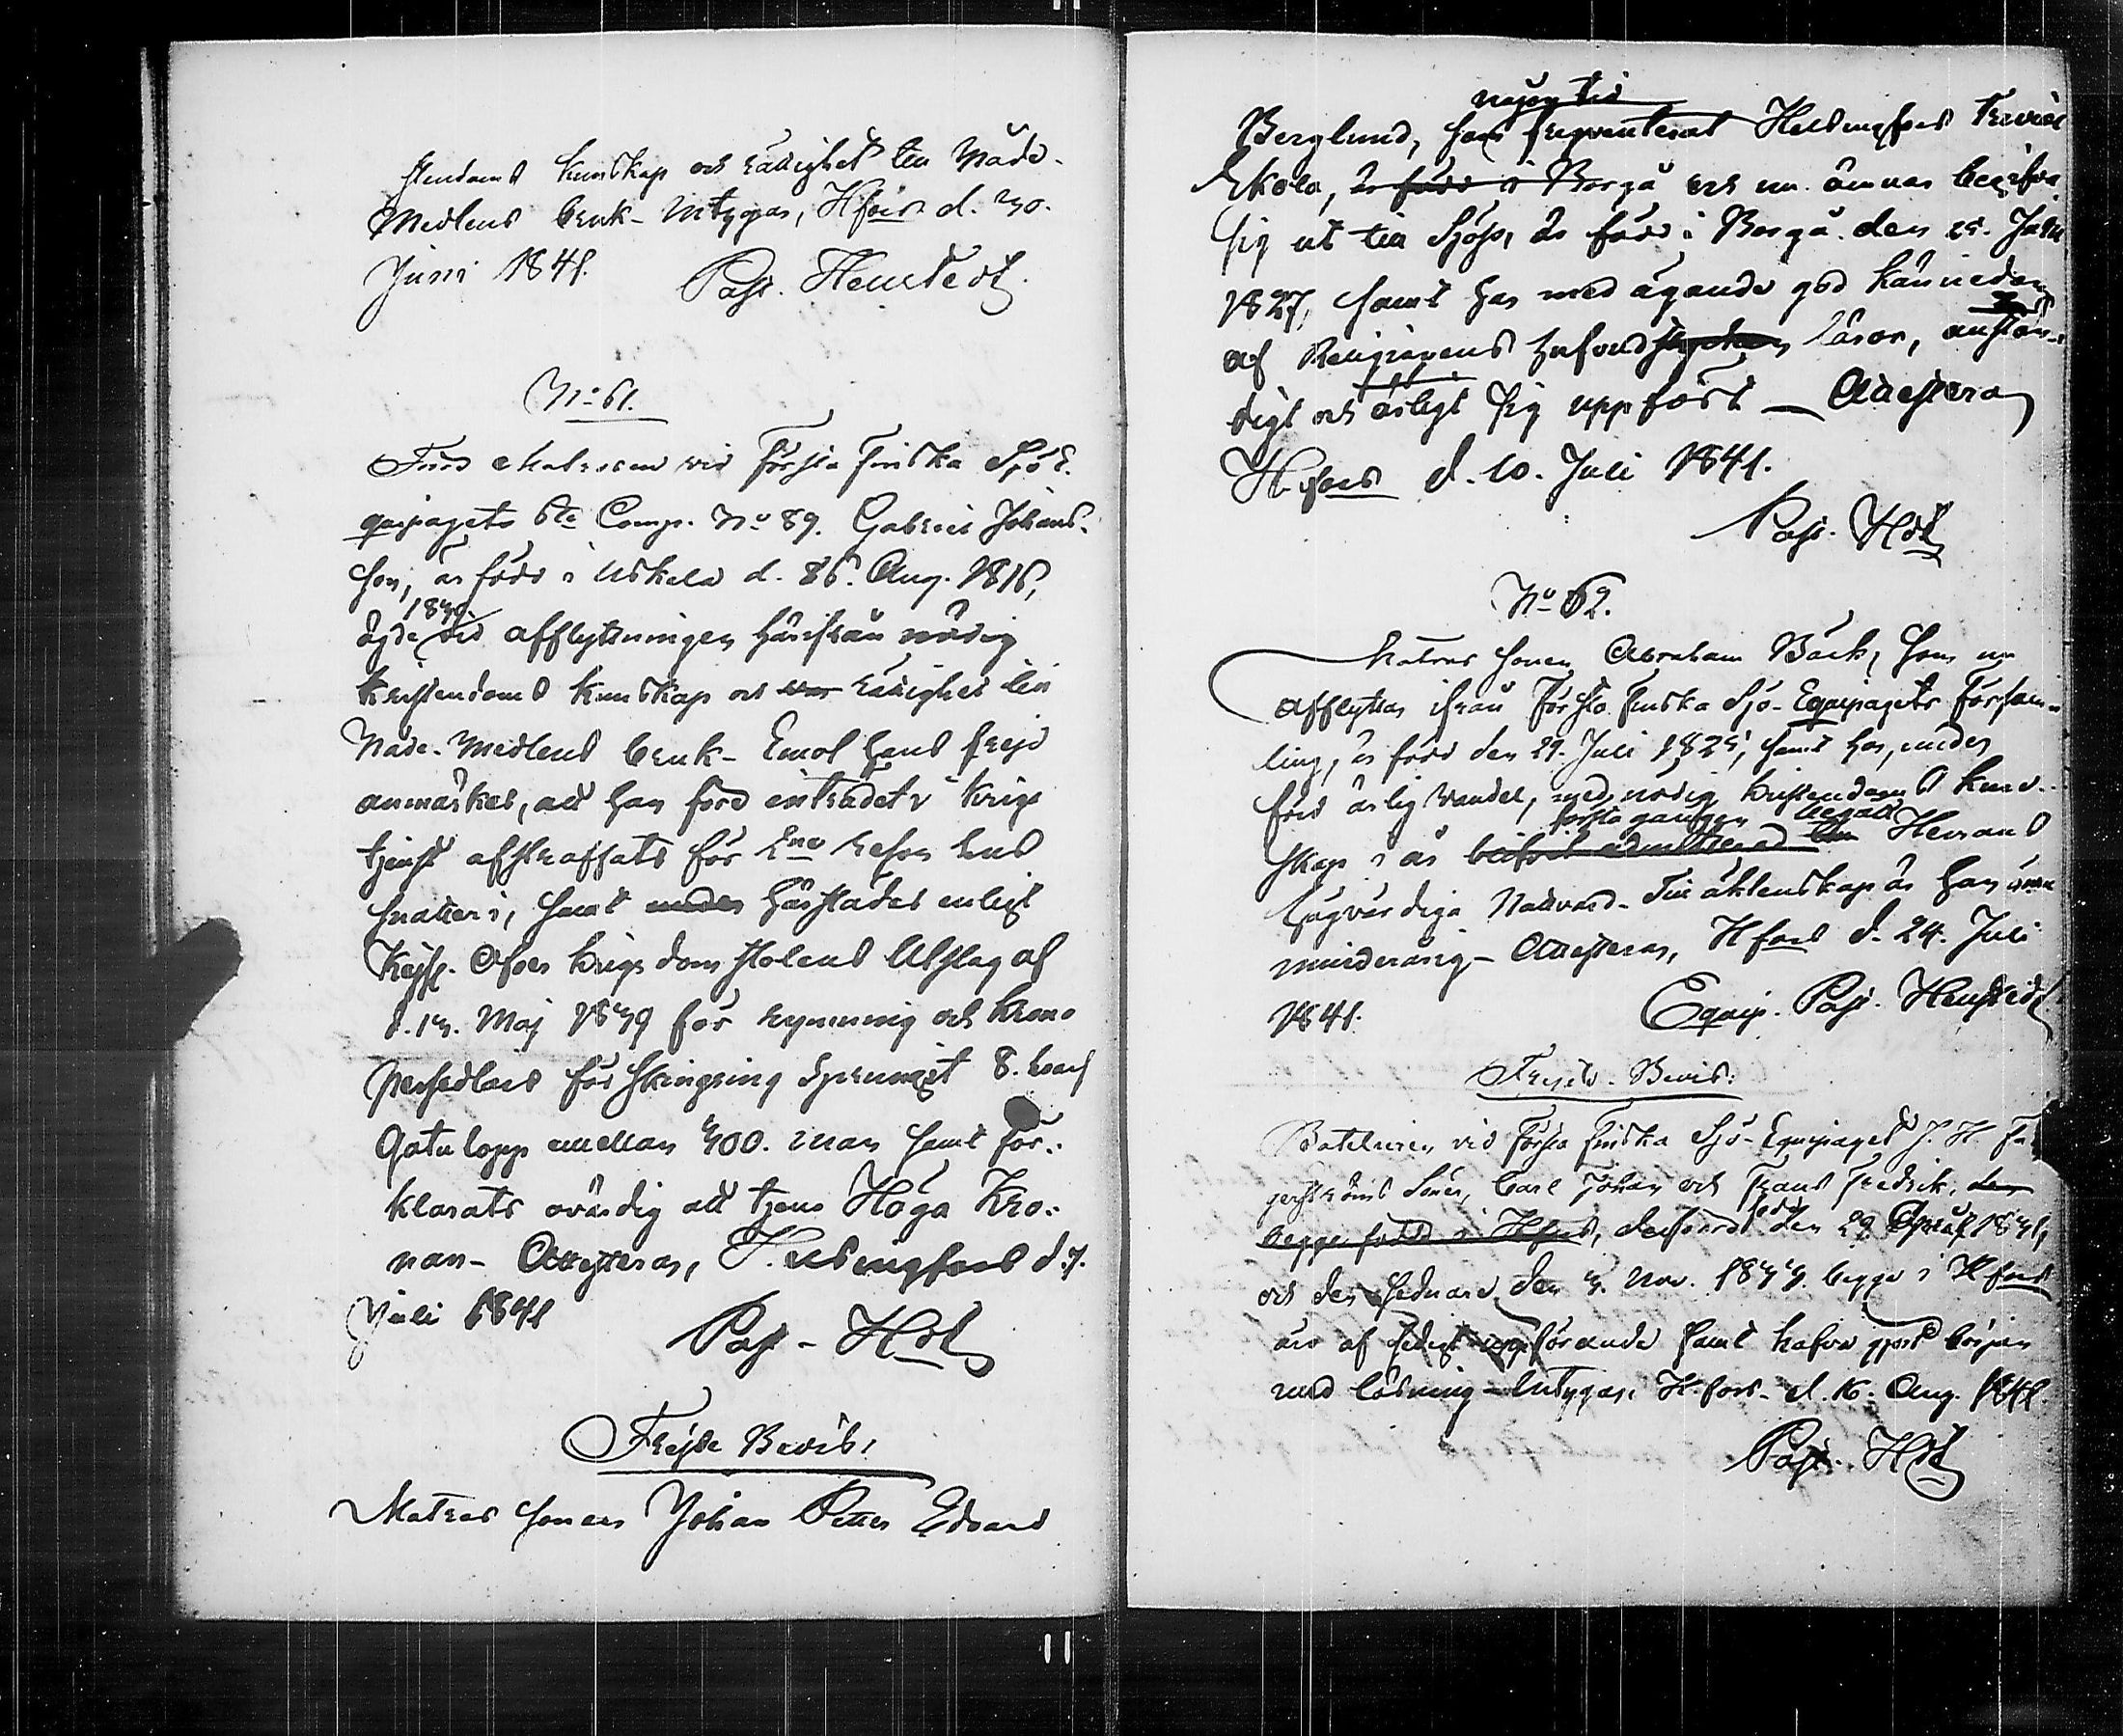 stendoms kunskap och rättighet till Nåde-
Medlens bruk- Intygas, Hfors d. 30.
Juni 1841. Past. Heurstedt.
No 61.
Förre Matrosen vid Första Finska Sjö E-
quipagets 6te Comp. No 89. Gabriel Johans-
son, är född i Uskela d. 26. Aug. 1816,
1839
ägde vid afflyttningen härifrån nödig
Kristendoms kunskap och rättighet till
Nåde-Medlens bruk- Emot hans frejd
anmärkes, att han före inträdet i krigs
tjenst afstraffats för 2ne resor
snatteri, samt härstädes enligt
Kejs. Öfver Krigs domstolens Utslag af
d. 13. Maj 1839 för rymning och krono
persedlars förskingring sprungit 8. hvarf
Gatulopp emellan 300. man samt för-
klarats ovärdig att tjena Höga Kro-
nan- Attesteras, Helsingfors d. 7.
Juli 1841 Past- Hdt
Frejde Bevis:
Matros sonen Johan Petter Edvard
någon tid
Berglund, som frequenterat Helsingfors Trivial
Skola, är född i Borgå och nu ämnar begifva
sig ut till Sjöss, är född i Borgå den 25. Julii
1827, samt har med ägande god kännedom
af Religionens hufvudstycken läror, anstän-
digt och ärligt sig uppfört – Attesteras
H.fors d. 10. Juli 1841.
Past. Hdt
No 62.
Matros sonen Abraham Bäck, som nu
afflyttar ifrån Första Finska Sjö-Equipagets Försam-
ling, är född den 29. Juli 1825, samt har, under
förd ärlig vandel, med nödig kristendoms kun-
första gången begått
skap Herrans
högvördiga Nattvard- Till äktenskap är han ännu
minderårig- Attesteras, Hfors d. 24. Juli
1841. Equip. Past. Heurstedt
Frejde-Bevis:
Båtsmannen vid Första Finska Sjö-Equipaget J. H. Fa
gerströms Söner, Carl Johan och Frans Fredrik, den
född
begge födde i Hfors, den förre den 29 April 1831,
och den sednare den 3. Nov. 1833. begge i Hfors
äro af sedigt uppförande samt hafva gjort början
med läsning- Intygas, H.fors- d. 16. Aug. 1841.
Past. Hdt